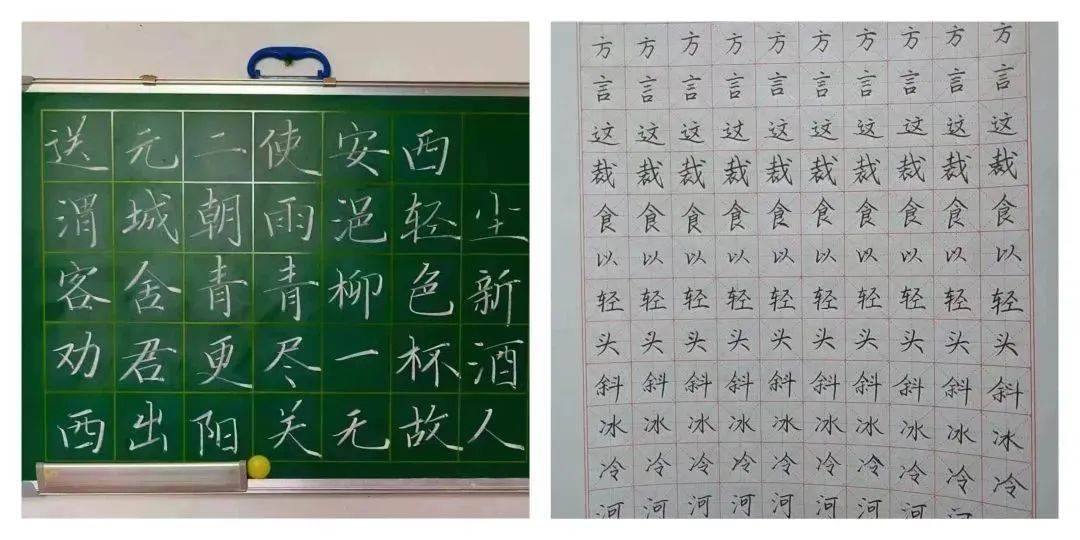 送元二使安西
渭城朝雨浥轻尘
客舍青青柳色新
劝君更尽一杯酒
西出阳关无故人
方方方方方方方方方方
言言言言言言言言言言
这这这这这这这这这这
裁裁裁裁裁裁裁裁裁裁
食食食食食食食食食食
以以以以以以以以以以
轻轻轻轻轻轻轻轻轻轻
头头头头头头头头头头
斜斜斜斜斜斜斜斜斜斜
冰冰冰冰冰冰冰冰冰冰
冷冷冷冷冷冷冷冷冷冷
河河河河河河河河